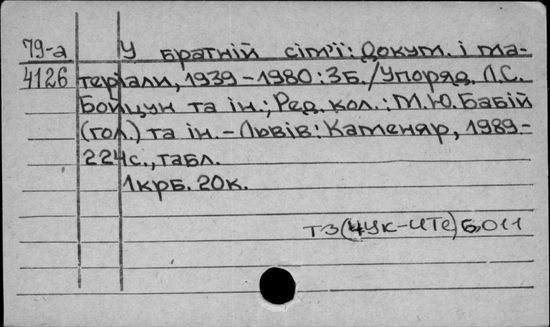 79-а У братній сім'ї: Докум. і ма-
4126 теріали, 1939-1980: Зб./Упоряд. Л.С.
Бойцун та ін.; Ред. кол.: М.Ю. Бабій
(гол.) та ін. - Львів: Каменяр, 1989-
224с., табл.
1крб. 20к.
ТЗ(4УК-4Те)6,011